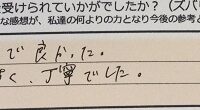 受けられていかがでしたか?(ズバ
な感想が、私達の何よりの力となり今後の参考と
で良かった。
く、丁寧でした。